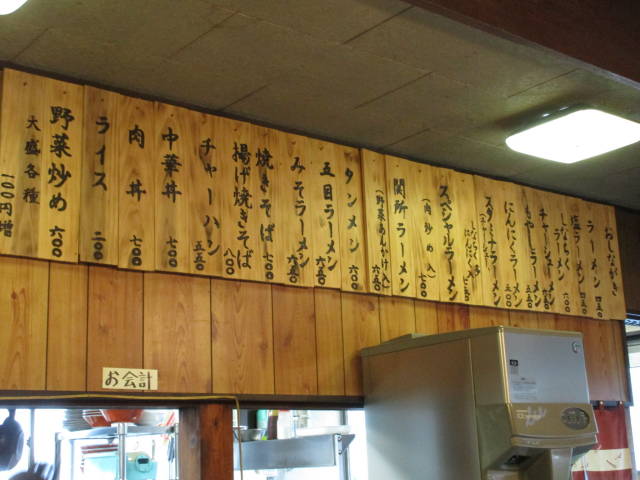 おしながき
ラーメン 四五〇
塩ラーメン 四五〇
しなちく
ラーメン 六〇〇
チャーシュー
メン
もやし
ラーメン 五五〇
にんにくラーメン 五〇〇
スタミナラーメン
スペシャルラーメン
(肉炒め入) 七〇〇
関所ラーメン
(野菜あんかけ入) 六五〇
タンメン 六〇〇
五目ラーメン 六五〇
みそラーメン 六五〇
焼きそば 七〇〇
揚げ焼きそば 八〇〇
チャーハン 五五〇
中華丼 七〇〇
肉丼 七〇〇
ライス 二〇〇
野菜炒め 六〇〇
大盛各種
一〇〇円増
お会計